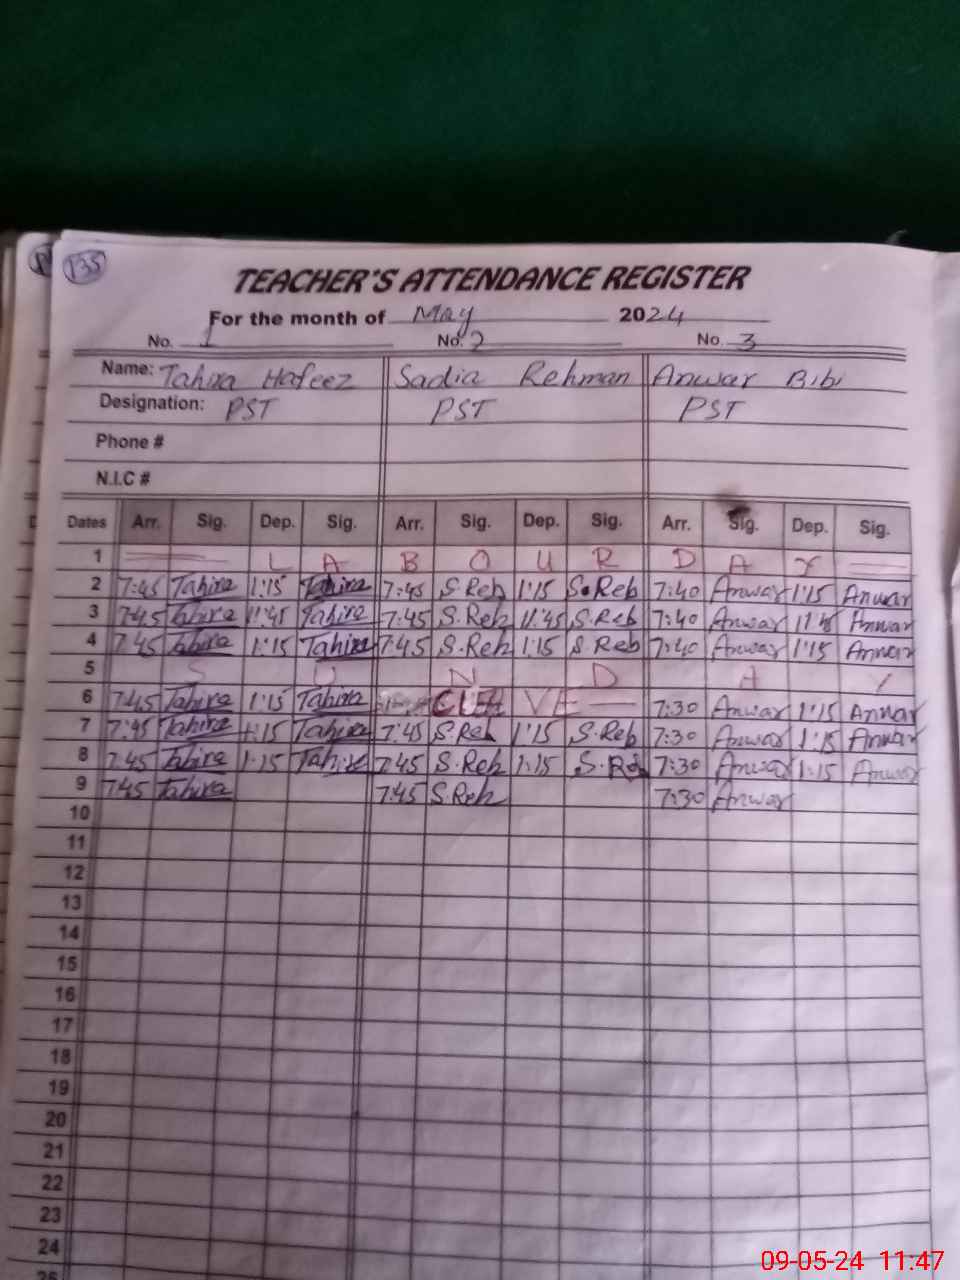 135
TEACHER'S ATTENDANCE REGISTER
For the month of May 2024
No. 1 No. 2 No. 3
Name: Tahira Hafeez Sadia Rehman Anwar Bibi
Designation: PST PST PST
Phone #
N.I.C #
Dates Arr. Sig. Dep. Sig. Arr. Sig. Dep. Sig. Arr. Sig. Dep. Sig.
1 L A B O U R D A Y
2 7:45 Tahira 1:15 Tahira 7:45 S.Reh 1:15 S.Reh 7:40 Anwar 1:15 Anwar
3 7:45 Tahira 11:45 Tahira 7:45 S.Reh 11:45 S.Reh 7:40 Anwar Anwar
4 7:45 Tahira 1:15 Tahira 7:45 S.Reh 1:15 S.Reh 7:40 Anwar 1:15 Anwar
5 S U N D A Y
6 7:45 Tahira 1:15 Tahira VE 7:30 Anwar 1:15 Anwar
7 7:45 Tahira 1:15 Tahira 7:45 S.Reh 1:15 S.Reh 7:30 Anwar 1:15 Anwar
8 7:45 Tahira 1:15 Tahira 7:45 S.Reh 1:15 S.Reh 7:30 Anwar 1:15 Anwar
9 7:45 Tahira 7:45 S.Reh 7:30 Anwar
10
11
12
13
14
15
16
17
18
19
20
21
22
23
24
09-05-24 11:47